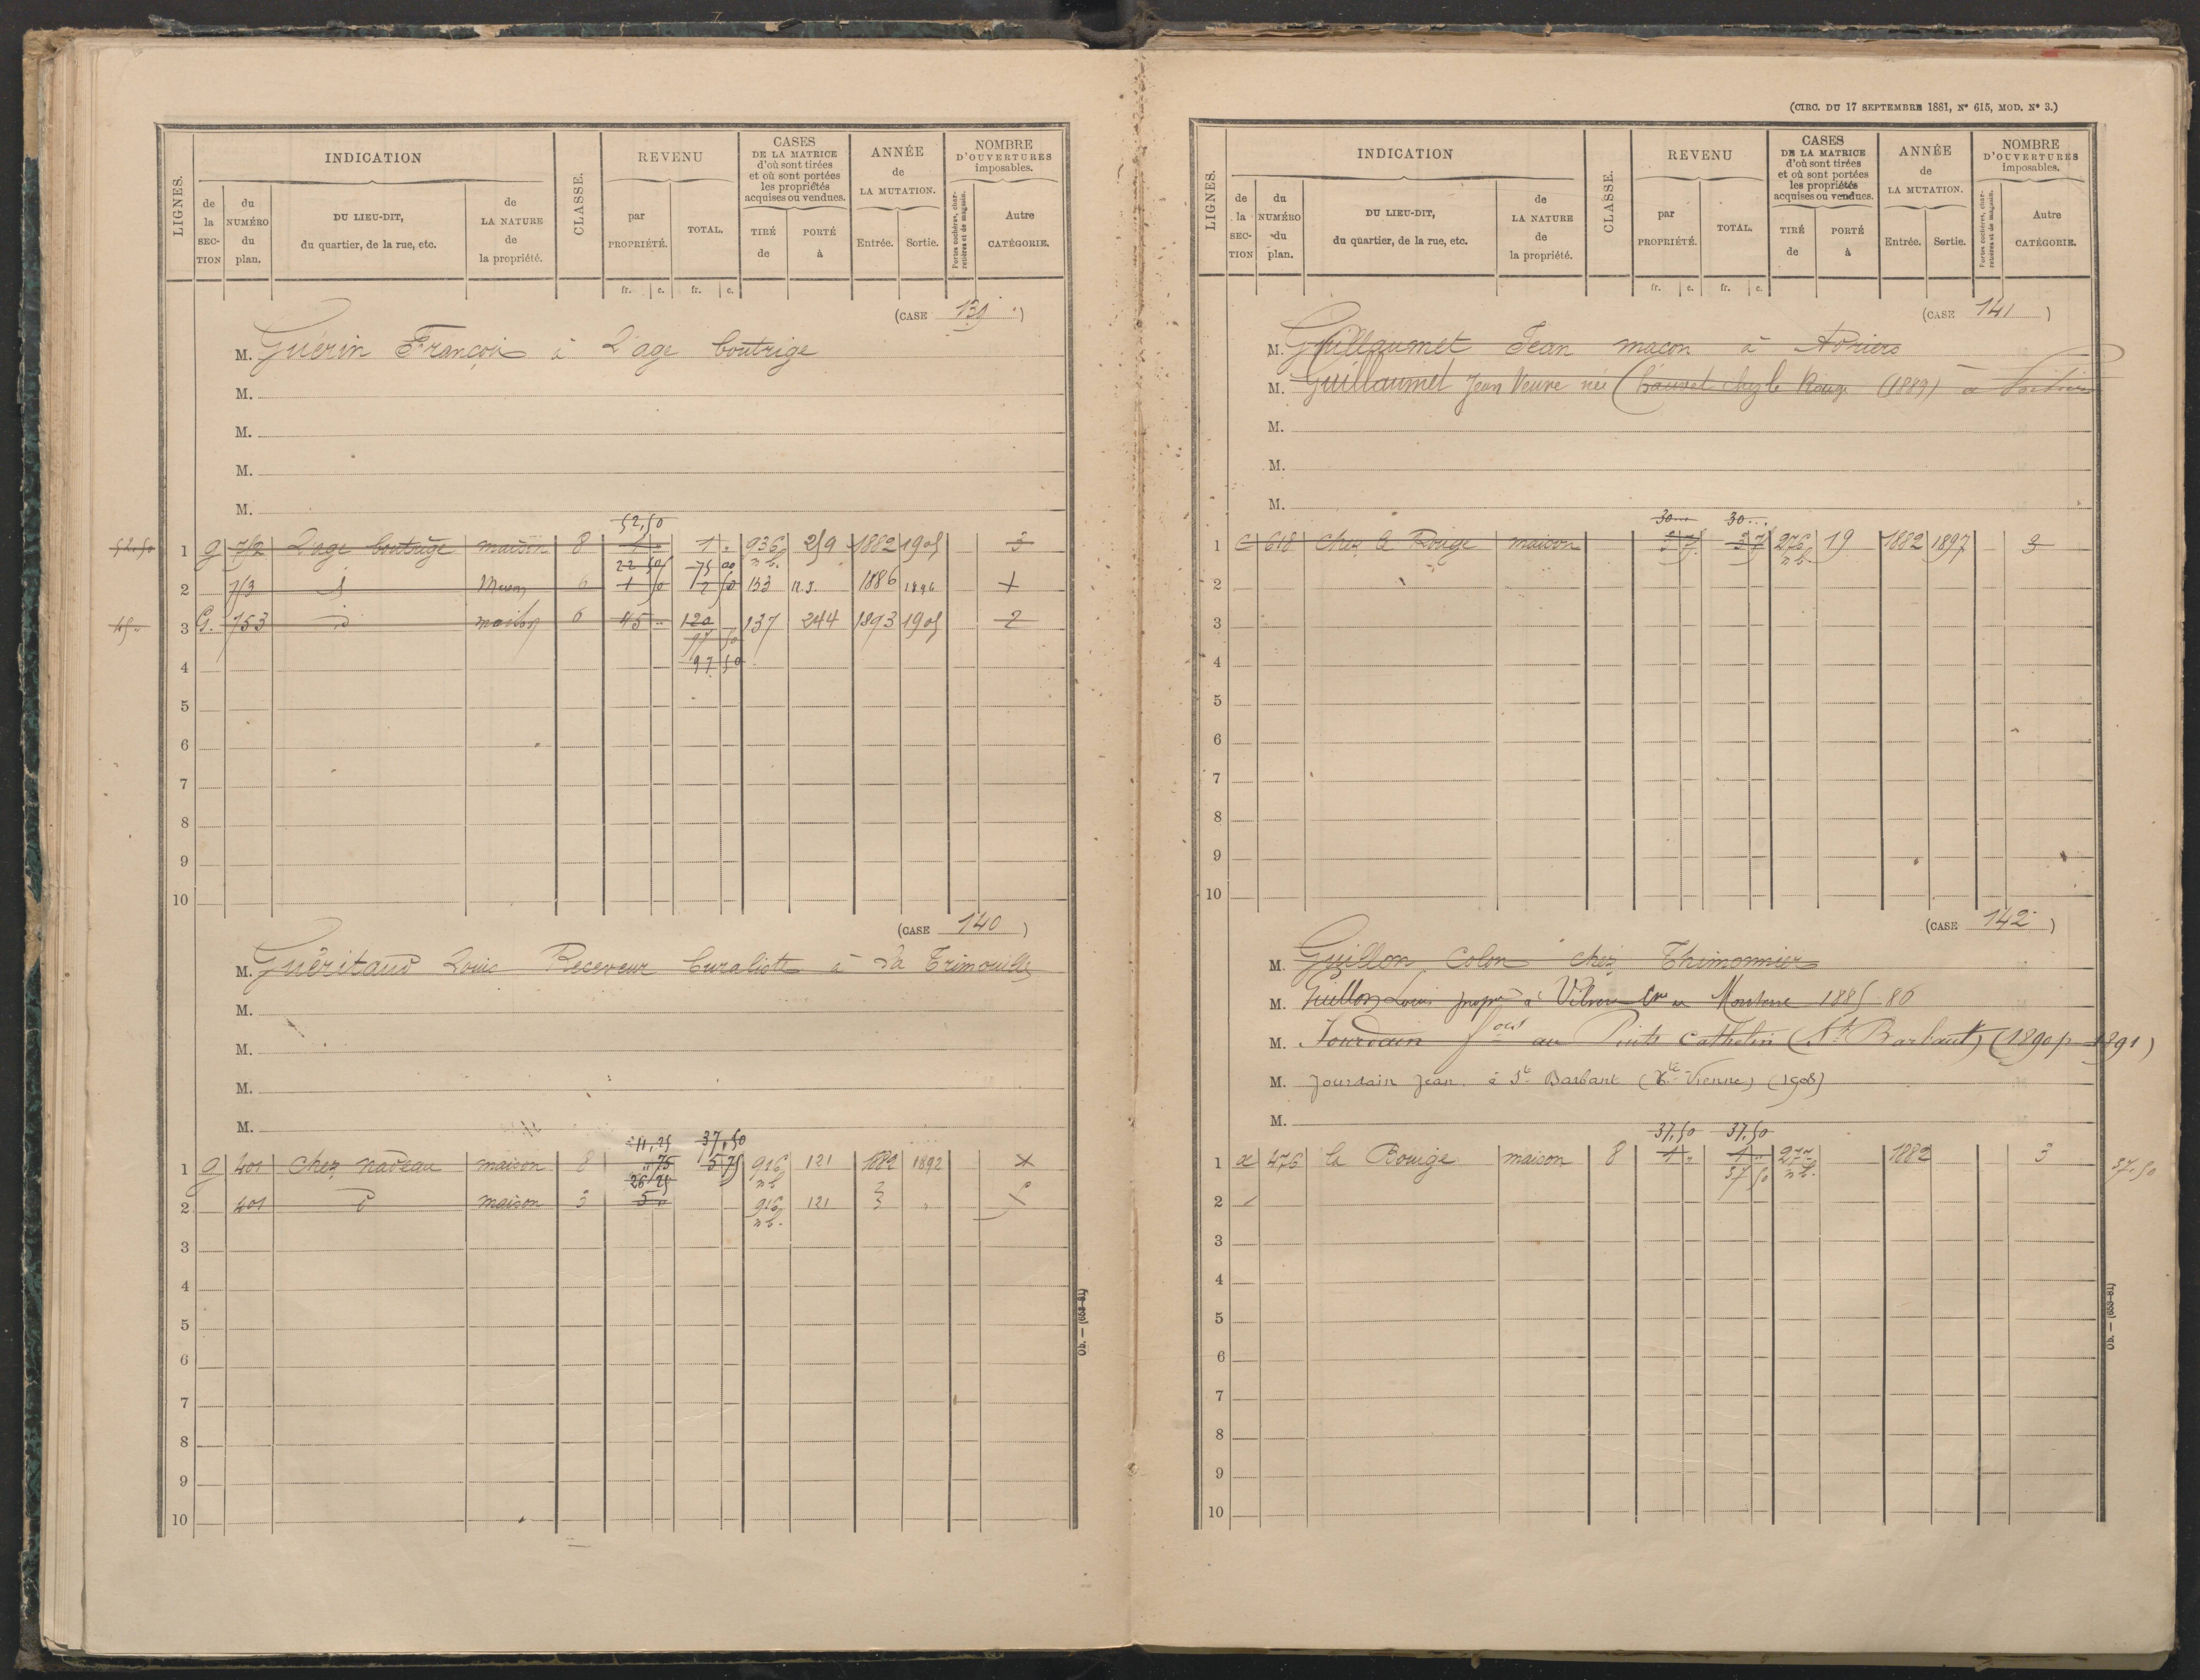 LIGNES.
INDICATION
de la SECTION
du NUMÉRO du plan.
DU LIEU-DIT, du quartier, de la rue, etc.
de LA NATURE de la propriété.
CLASSE.
REVENU
par PROPRIÉTÉ.
TOTAL.
CASES DE LA MATRICE d'où sont tirées et où sont portées les propriétés acquises ou vendues.
TIRÉ de
PORTÉ à
ANNÉE de LA MUTATION.
Entrée.
Sortie.
NOMBRE D'OUVERTURES imposables.
Portes cochères, charretières et de magasin.
Autre CATÉGORIE.
fr. c. fr. c.
(CASE 139.)
M. Guérin François à L'age boutrige
M.
M.
M.
M.
52,50
52.50 1 g 712 L'age boutrige maison 8 1 " 1 " 936 259 1882 1905 3
22 50 75 00 n b.
2 713 d Maison 6 1 50 2 50 153 n.I. 1886 1896 +
45 " 3 G. 753 d maison 6 45 " 120 137 244 1893 1905 2
97 50
4 97 50
5
6
7
8
9
10
(CASE 140)
M. Guéritaud Louis Receveur buraliste à La Trimouille
M.
M.
M.
M.
11,25 37,50
1 g 401 chez nadeau maison 8 " 75 5 75 916 121 1882 1892 X
26 25 n b
2 401 d maison 3 5 " 916 121
n b.
3
4
5
6
7
8
9
10
Ob. — (653-81)
(CIRC. DU 17 SEPTEMBRE 1881, N° 615, MOD. N° 3.)
LIGNES.
INDICATION
de la SECTION
du NUMÉRO du plan.
DU LIEU-DIT, du quartier, de la rue, etc.
de LA NATURE de la propriété.
CLASSE.
REVENU
par PROPRIÉTÉ.
TOTAL.
CASES DE LA MATRICE d'où sont tirées et où sont portées les propriétés acquises ou vendues.
TIRÉ de
PORTÉ à
ANNÉE de LA MUTATION.
Entrée.
Sortie.
NOMBRE D'OUVERTURES imposables.
Portes cochères, charretières et de magasin.
Autre CATÉGORIE.
fr. c. fr. c.
(CASE 141)
M. Guillaumet Jean maçon à Adriers
M. Guillaumet Jean Veuve née chez le Rouge (1889) à Poitiers
M.
M.
M.
30 30
1 C 618 chez le Rouge maison 276 19 1882 1897 3
n b.
2
3
4
5
6
7
8
9
10
(CASE 142)
M. Guillon Colon chez Thimonnier
M. Guillon Louis propre à 1885-86
M. Jourdain au Cathelin (St Barbant) (1890 p 1891)
M. Jourdain Jean à St Barbant (Hte Vienne) (1908)
M.
37,50 37,50
1 a 476 la Rouige maison 8 1 " 1 " 277 1882 3 37.50
37 50 n b.
2
3
4
5
6
7
8
9
10
Ob. — (653-81)